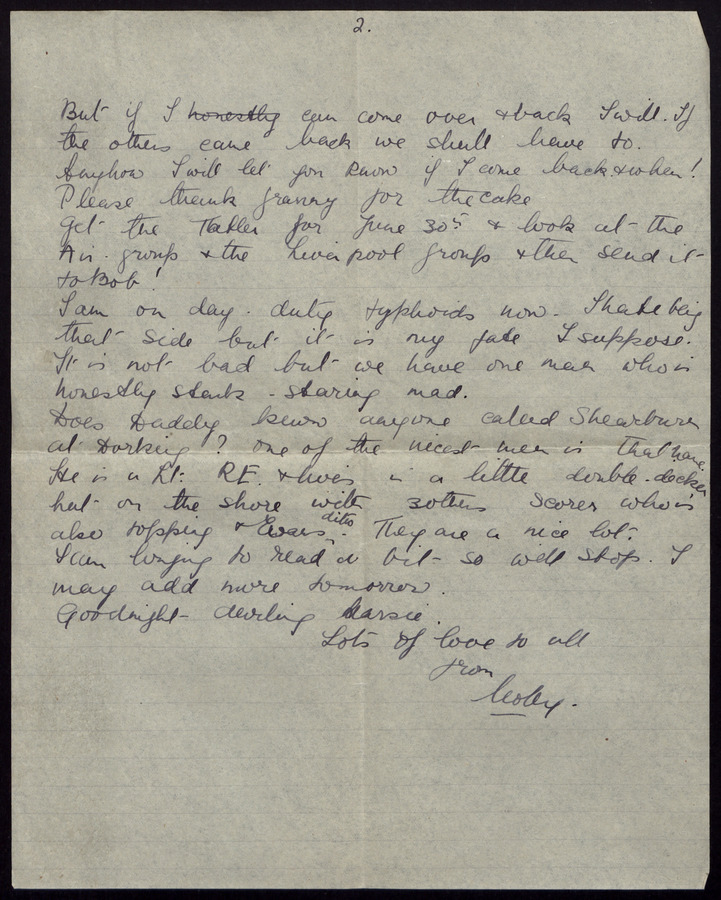 2.
But if I honestly can come over & back I will. If
the others came back we shall have to.
Anyhow I will let you know if I come back & when!
Please thank granny for the cake
Get the Tatler for June 30th & look at the
Air. group & the Liverpool group & then send it
to Bob!
I am on day. duty typhoids now. I hate being
that side but it is my fate I suppose.
It is not bad but we have one man who is
honestly stark - staring mad.
Does Daddy know anyone called Shearburn
at Dorking? one of the nicest men is that name.
He is a Lt: R.E. & lives in a little double-decker
hut on the shore with 3 others Scorer who is
also topping & Evans ditto. They are a nice lot.
I am longing to read a bit so will stop. I
may add more tomorrow.
Goodnight darling
Lots of love to all
from